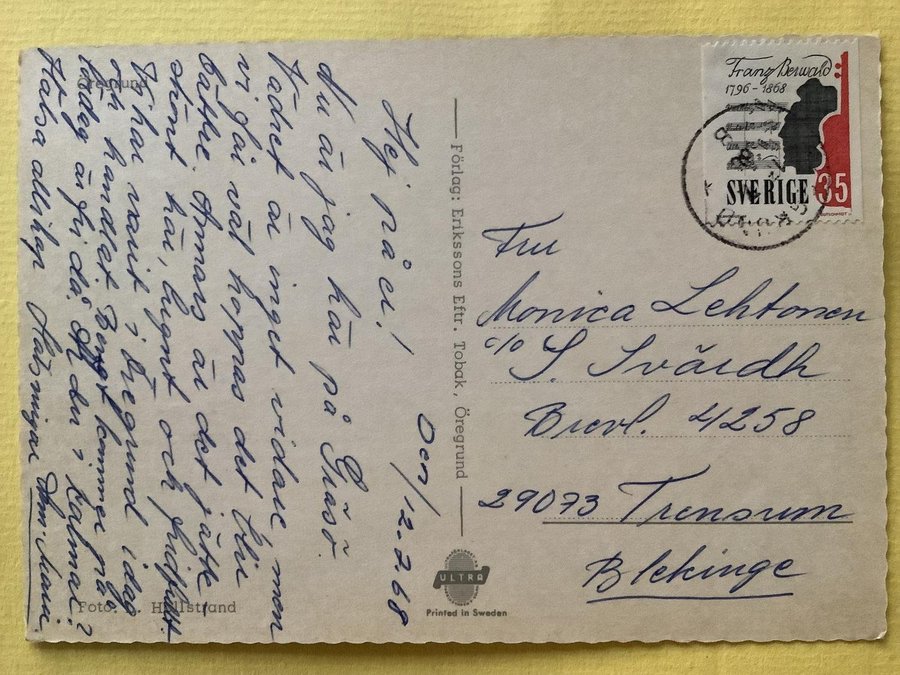 Öregrund
Hej på er!
Den 12.7.68
Nu är jag här på Gräsö.
Vädret är inget vidare men
vi får väl hoppas det blir
bättre. Annars är det jätte
skönt här, lugnt och fridfullt.
Vi har varit i Öregrund idag
och handlat. Bengt kommer på
lördag är fri då. Är du i Kalmar?
Hälsa allihop Hälsningar Ann-Marie.
Foto: Hellstrand
Förlag: Erikssons Eftr. Tobak, Öregrund
ULTRA
Printed in Sweden
Franz Berwald
1796-1868
SVERIGE 35
Fru
Monica Lehtonen
c/o S. Svärdh
Brevl. 4258
29073 Trensum
Blekinge